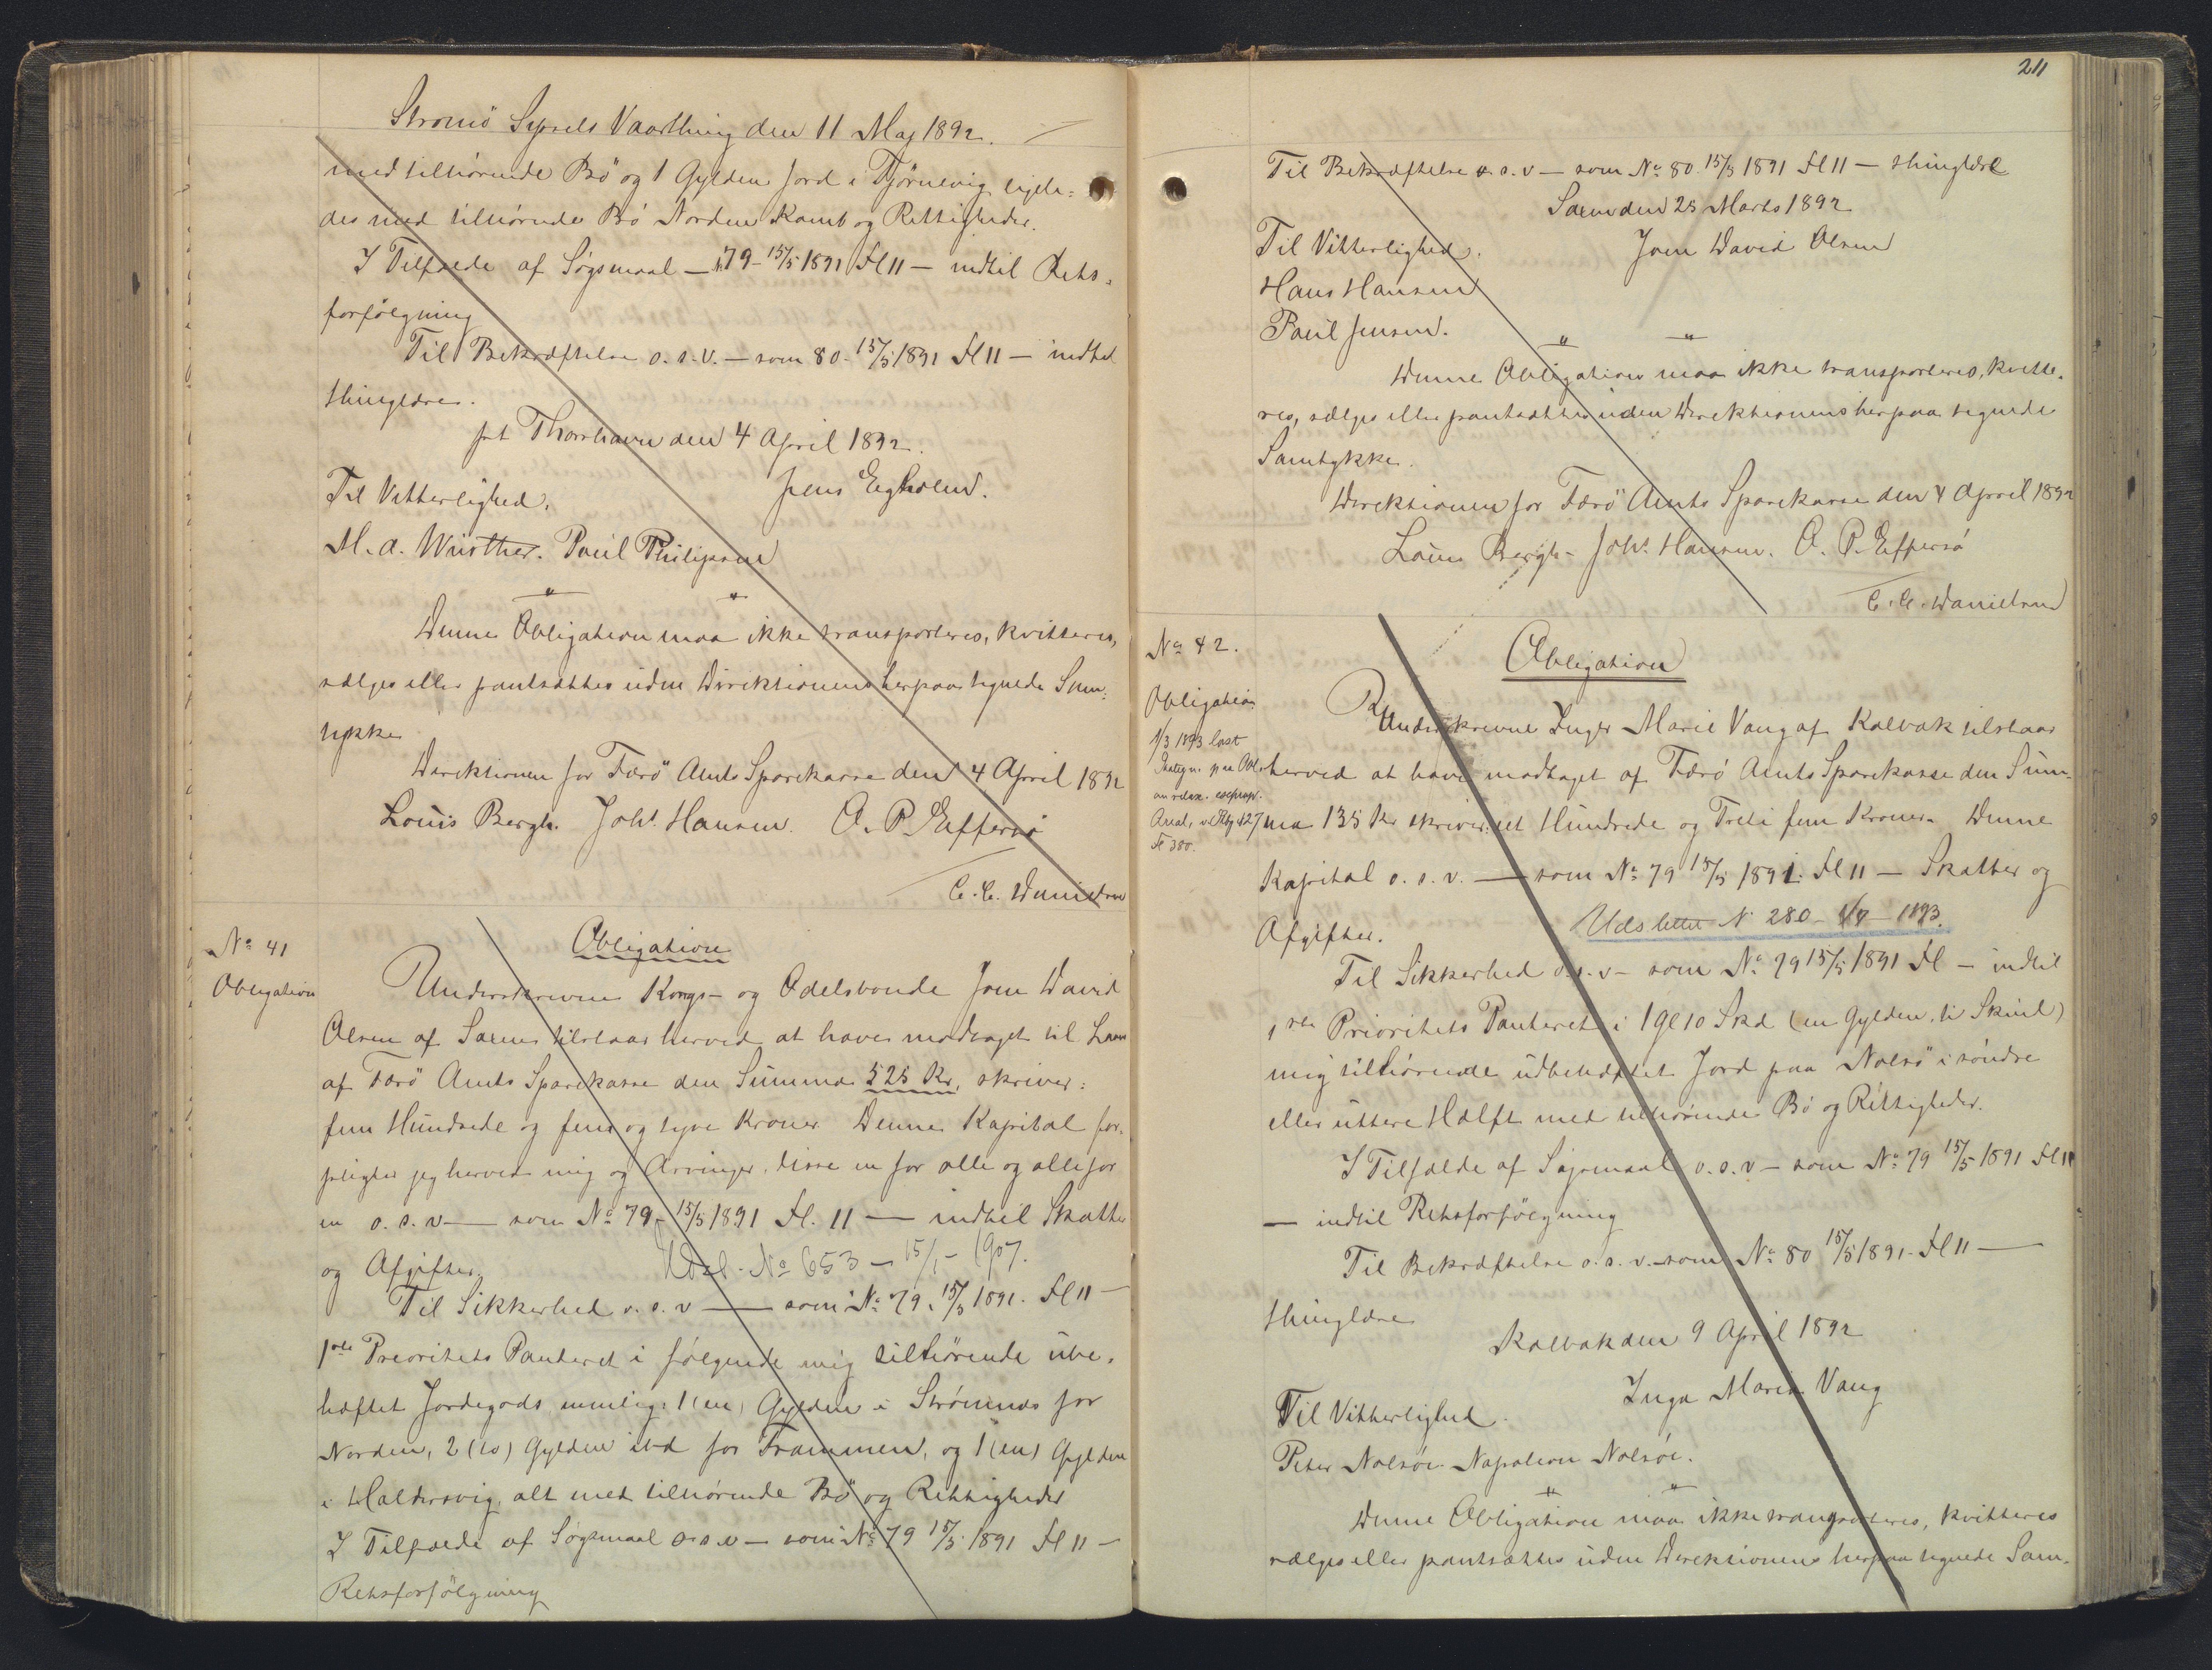 Strømø Syssels Vaarthing den 11 Maj 1892.
med tilhørende Bø og 1 Gylden Jord i Tjørnevig ligele-
des med tilhørende Bø Norden Kamb og Rettigheder.
I Tilfælde af Søgsmaal — 79 - 15/5 1891 Fl 11 — indtil Rets-
forfølgning
Til Bekræftelse o. s. v. — som 80 - 15/5 1891 Fl 11 — indtil
thinglæse.
pt Thorshavn den 4 April 1892.
Jens Eigholm.
Til Vitterlighed.
M. A. Winther. Paul Philipsen
" "
Denne Obligation maa ikke transporteres, kvitteres,
sælges eller pantsættes uden Direktionens herpaa tegnede Sam-
tykke
Direktionen for Færø Amts Sparekasse den 4 April 1892
Louis Bergh. Johs. Hansen. O. P. Effersø
C. C. Danielsen
No 41
Obligation
Obligation
Underskrevne Kongs- og Odelsbonde Joen David
Olsen af Saxen tilstaar herved at have modtaget til Laan
af Færø Amts Sparekasse den Summa 525 Kr, skriver:
fem Hundrede og fem og tyve Kroner. Denne Kapital for-
pligter jeg herved mig og Arvinger, disse en for alle og alle for
en o. s. v — som No 79 - 15/5 1891 Fl. 11 — indtil Skatter
og Afgifter.
Udsl. No 653 — 15/1 - 1907.
Til Sikkerhed o. s. v — som No 79. 15/5 1891. Fl 11 —
1ste Prioritets Panteret i følgende mig tilhørende ube-
hæftet Jordegods nemlig: 1 (en) Gylden i Strømnæs for
Norden, 2 (to) Gylden ibd for Frammen, og 1 (en) Gylden
i Haldersvig, alt med tilhørende Bø og Rettigheder
I Tilfælde af Søgsmaal o. s. v — som No 79 15/5 1891 Fl 11 —
Retsforfølgning
211
Til Bekræftelse o. s. v — som No 80 15/5 1891 Fl 11 — thinglæse
Saxen den 25 Marts 1892
Til Vitterlighed. Joen David Olsen
Hans Hansen
Paul Jensen.
" "
Denne Obligation maa ikke transporteres, kvitte-
res, sælges eller pantsættes uden Direktionens herpaa tegnede
Samtykke.
Direktionen for Færø Amts Sparekasse den 4 April 1892
Louis Bergh - Johs. Hansen. O. P. Effersø
C. C. Danielsen
No 42.
Obligation
1/3 1893 læst
Paategn. paa Obl.
om relax. exprop.
Areal, v. Pbg 427
Fl 300.
Obligation
Underskrevne Inger Marie Vang af Kalbak tilstaar
herved at have modtaget af Færø Amts Sparekasse den Sum-
ma 135 Kr skriver: et Hundrede og Treti fem Kroner. Denne
Kapital o. s. v. — som No 79 15/5 1891. Fl 11 — Skatter og
Afgifter.
Udslettet N. 280 - 1893.
Til Sikkerhed o. s. v — som No 79 15/5 1891 Fl — indtil
1ste Prioritets Panteret i 1 Gl 10 Skd (en Gylden, ti Skind)
mig tilhørende udbehæftet Jord paa Nolsø i søndre
eller uttere Hälft med tilhørende Bø og Rettigheder.
I Tilfælde af Søgsmaal o. s. v — som No 79 15/5 1891 Fl 11
— indtil Retsforfølgning
Til Bekræftelse o. s. v. — som No 80 15/5 1891. Fl 11 —
thinglæse
Kalbak den 9 April 1892
Inga Maria Vang
Til Vitterlighed.
Peter Nolsøe. Napoleon Nolsøe.
" "
Denne Obligation maa ikke transporteres, kvitteres
sælges eller pantsættes uden Direktionens herpaa tegnede Sam-